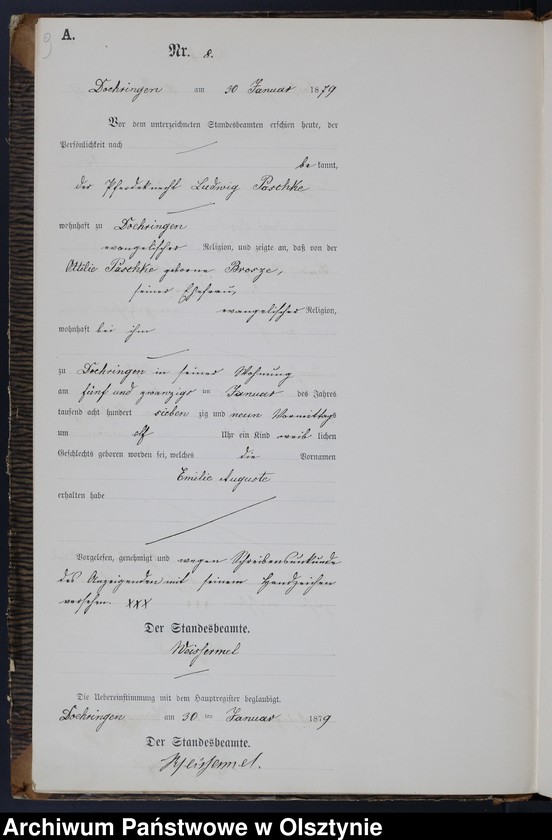 9
A.
Nr. 8.
Doehringen am 30 Januar 1879
Vor dem unterzeichneten Standesbeamten erschien heute, der
Persönlichkeit nach
be kannt,
der Pferdeknecht Ludwig Paschke
wohnhaft zu Doehringen
evangelischer Religion, und zeigte an, daß von der
Ottilie Paschke geborne Brosze,
seiner Ehefrau,
evangelischer Religion,
wohnhaft bei ihm
zu Doehringen in seiner Wohnung
am fünf und zwanzigs ten Januar des Jahres
tausend acht hundert sieben zig und neun Vormittags
um elf Uhr ein Kind weib lichen
Geschlechts geboren worden sei, welches die Vornamen
Emilie Auguste
erhalten habe
Vorgelesen, genehmigt und wegen Schreibensunkunde
des Anzeigenden mit seinem Handzeichen
versehen. XXX
Der Standesbeamte.
Weissermel
Die Uebereinstimmung mit dem Hauptregister beglaubigt.
Doehringen am 30. ten Januar 1879
Der Standesbeamte.
Weissermel.
Archiwum Państwowe w Olsztynie